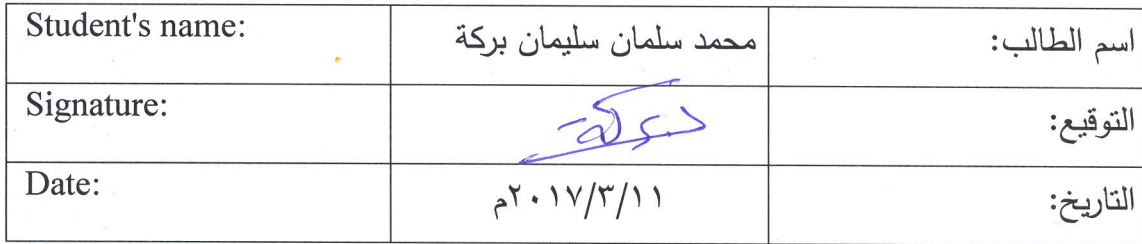 Student's name: محمد سلمان سليمان بركة اسم الطالب:
Signature: التوقيع:
Date: ٢٠١٧/٣/١١م التاريخ: